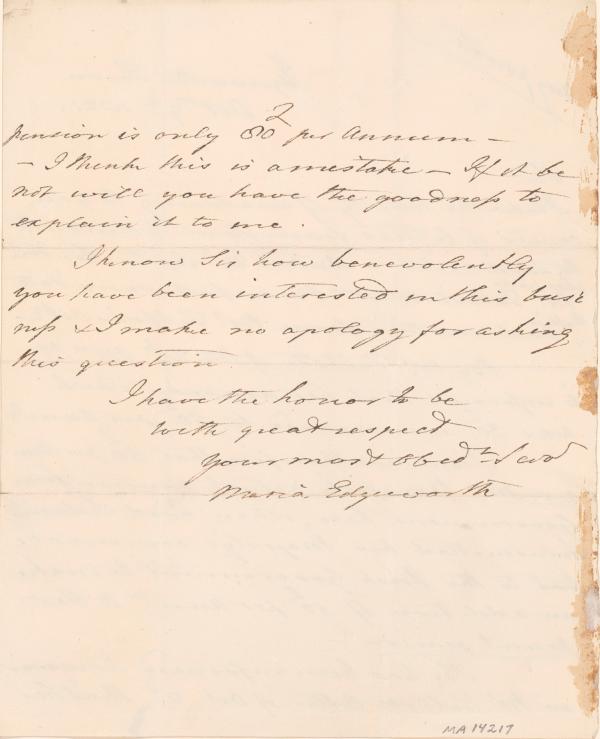 pension is only 80 per Annum –
– I think this is a mistake – If it be
not will you have the goodness to
explain it to me.
I know Sir how benevolently
you have been interested in this busi
ness & I make no apology for asking
this question
I have the honor to be
with great respect
your most Obedt. Servt
Maria Edgeworth
MA 14217